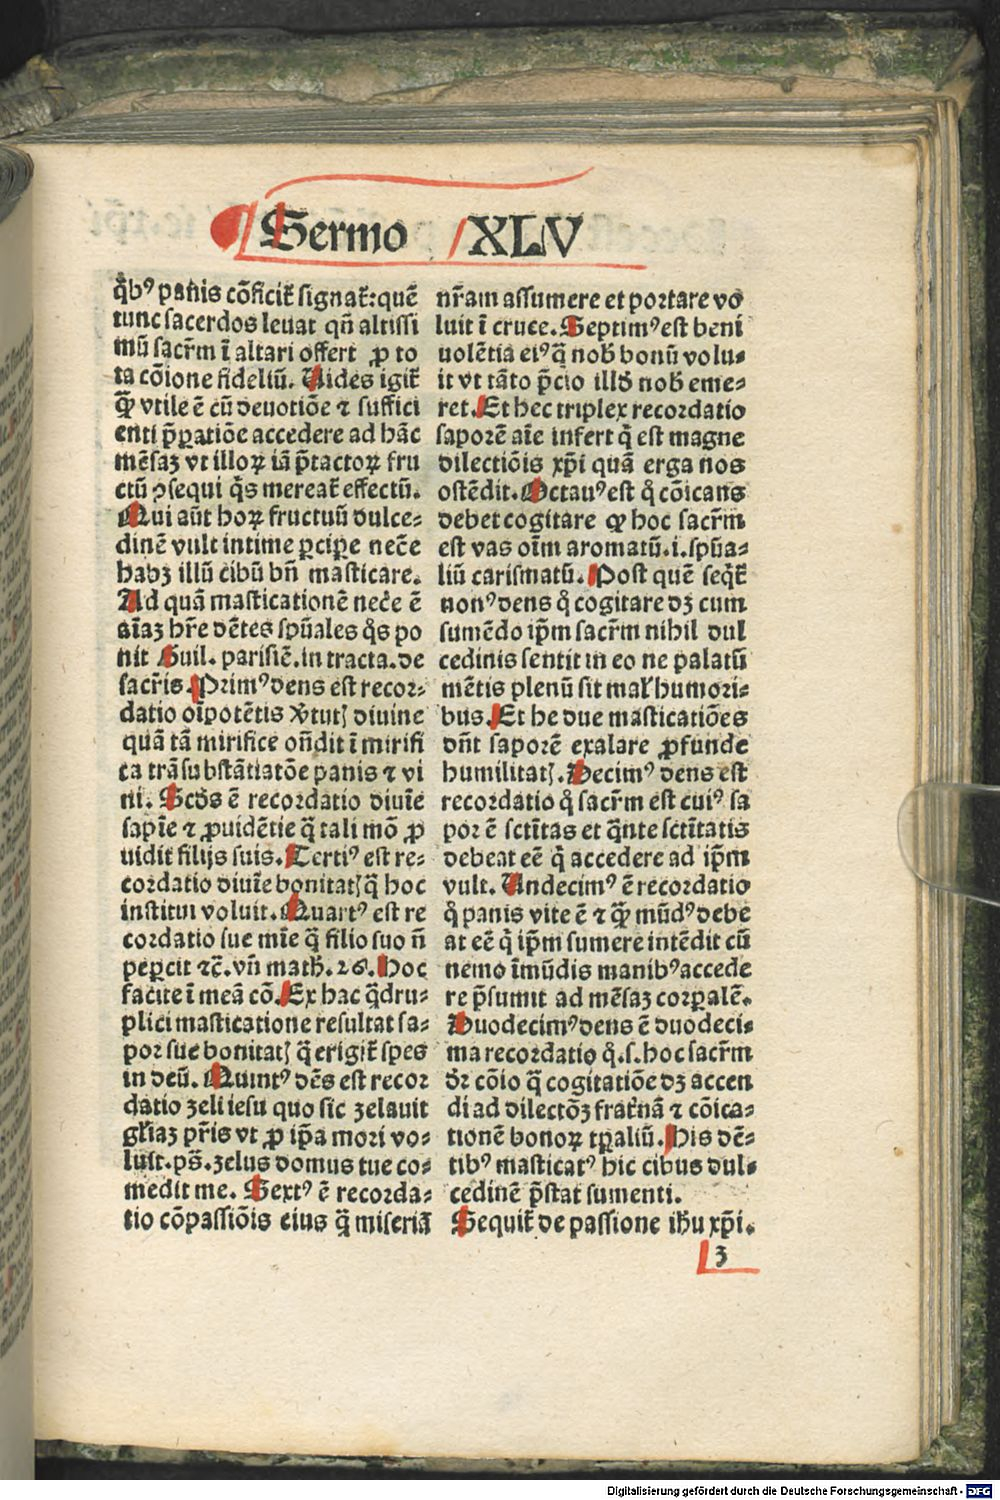 Sermo XLV
q̊bꝰ panis cōficit᷑ signat᷑: quē
tunc sacerdos leuat qn̄ altissi
mū sacr̄m ī altari offert ꝓ to
ta cōione fideliū. Uides igit᷑
ꝙ̄ vtile ē cū deuotiōe ⁊ suffici
enti p̄ꝑatiōe accedere ad hāc
mēsaꝫ vt illoꝝ iā p̄tactoꝝ fru
ctū ꝯsequi q̊s mereat᷑ effectū.
Qui aūt hoꝝ fructuū dulce⸗
dinē vult intime ꝑciꝑe necē
habꝫ illū cibū bn̄ masticare.
Ad quā masticationē necē ē
aīaꝫ hr̄e dētes spūales q̊s po
nit Guil. parisiē. in tracta. de
sacr̄is. Primꝰ dens est recor⸗
datio oīpotētis v̓tutꝭ diuine
quā tā mirifice on̄dit ī mirifi
ca trāsubstātiatōe panis ⁊ vi
ni. Scd̓s ē recordatio diuīe
sapīe ⁊ ꝓuidētie q̄ tali mō ꝓ
uidit filijs suis. Tertiꝰ est re⸗
cordatio diuīe bonitatꝭ q̄ hoc
institui voluit. Quartꝰ est re
cordatio sue mīe q̄ filio suo n̄
peꝑcit ⁊c̄. vn̄ math̓. 26. Hoc
facite ī meā cō. Ex hac q̄dru⸗
plici masticatione resultat sa⸗
por sue bonitatꝭ q̄ erigit᷑ spes
in deū. Quintꝰ dēs est recor
datio zeli iesu quo sic zelauit
gl̓iaꝫ pr̄is vt ꝓ ip̄a mori vo⸗
luit. ps̄. zelus domus tue co⸗
medit me. Sextꝰ ē recorda⸗
tio cōpassiōis eius q̄ miseriā
nr̄am assumere et portare vo
luit ī cruce. Septimꝰ est beni
uolētia eiꝰ q̄ nob̓ bonū volu⸗
it vt tāto p̄cio illd̓ nob̓ eme⸗
ret. Et hec triplex recordatio
saporē aīe infert q̓ est magne
dilectiōis xp̄i quā erga nos
ostēdit. Octauꝰ est q̊ cōicans
debet cogitare ꝙ hoc sacr̄m
est vas oīm aromatū .i. spūa⸗
liū carismatū. Post quē seq̓t᷑
nonꝰ dens q̊ cogitare dꝫ cum
sumēdo ip̄m sacr̄m nihil dul
cedinis sentit in eo ne palatū
mētis plenū sit mal̓ humori⸗
bus. Et he due masticatiōes
dn̄t saporē exalare ꝓfunde
humilitatꝭ. Decimꝰ dens est
recordatio q̊ sacr̄m est cuiꝰ sa
por ē sctītas et q̄nte sctītatis
debeat eē q̓ accedere ad ip̄m
vult. Undecimꝰ ē recordatio
q̊ panis vite ē ⁊ ꝙ̄ mūdꝰ debe
at eē q̓ ip̄m sumere intēdit cū
nemo īmūdis manibꝰ accede
re p̄sumit ad mēsaꝫ corꝑalē.
Duodecimꝰ dens ē duodeci⸗
ma recordatio q̊ .s. hoc sacr̄m
dr̄ cōio q̄ cogitatiōe dꝫ accen
di ad dilectōꝫ frat᷑nā ⁊ cōica⸗
tionē bonoꝝ tꝑaliū. His dē⸗
tibꝰ masticatꝰ hic cibus dul⸗
cedinē p̄stat sumenti.
Sequit᷑ de passione ih̄u xp̄i.
3
Digitalisierung gefördert durch die Deutsche Forschungsgemeinschaft - DFG